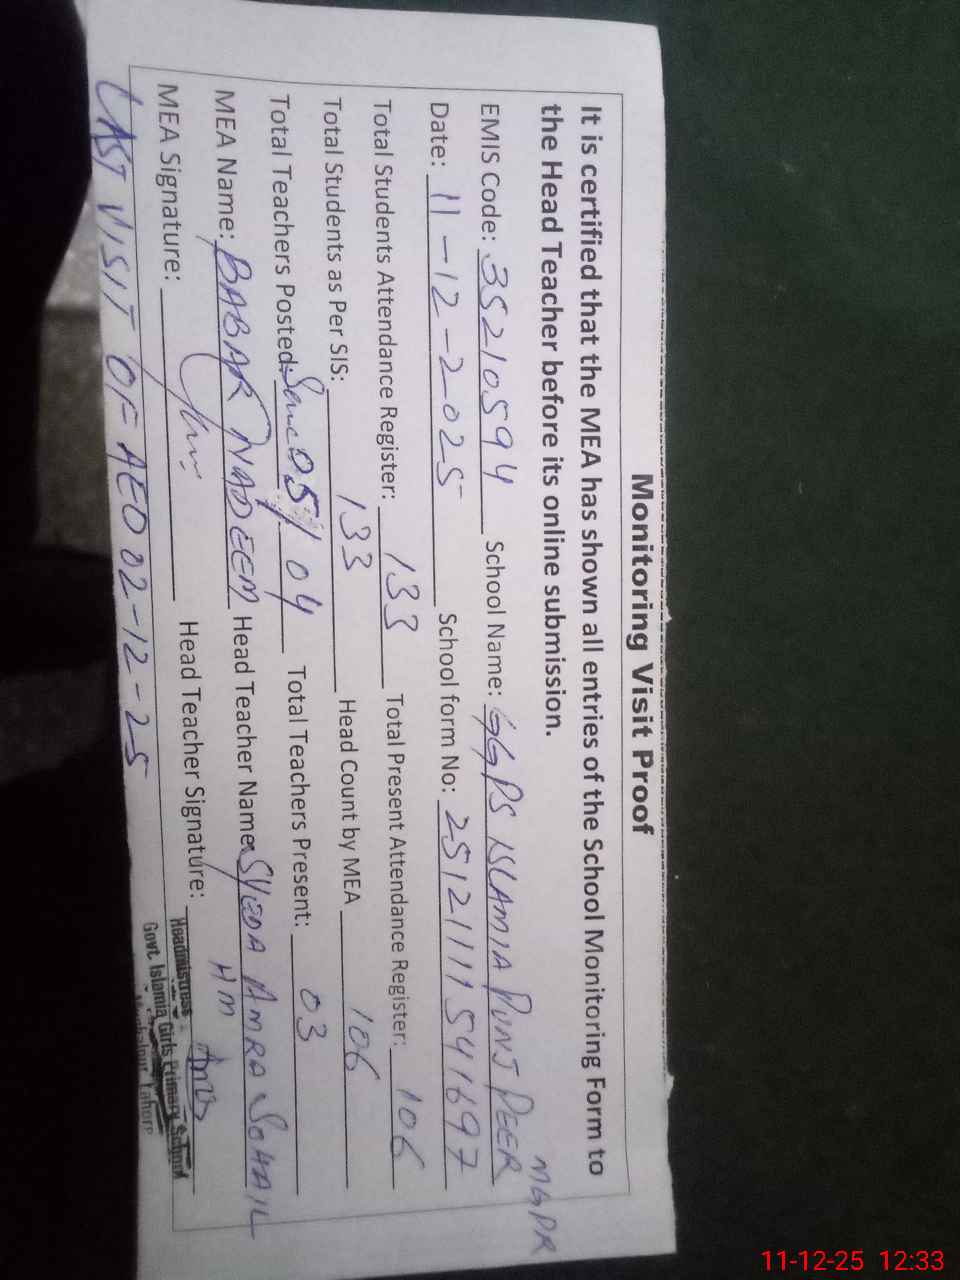 Monitoring Visit Proof
It is certified that the MEA has shown all entries of the School Monitoring Form to
the Head Teacher before its online submission.
MGPR
EMIS Code: 35210594 School Name: GGPS ISLAMIA PUNJ PEER
Date: 11-12-2025 School form No: 2512111154 1697
Total Students Attendance Register: 133 Total Present Attendance Register: 106
Total Students as Per SIS: 133 Head Count by MEA 106
Total Teachers Posted: 05/04 Total Teachers Present: 03
MEA Name: BABAR NADEEM Head Teacher Name: SYEDA AMRA SOHAIL
HM
MEA Signature: Head Teacher Signature:
Headmistress
Govt. Islamia Girls Primary School
Lahore
LAST VISIT OF AEO 02-12-25
11-12-25 12:33